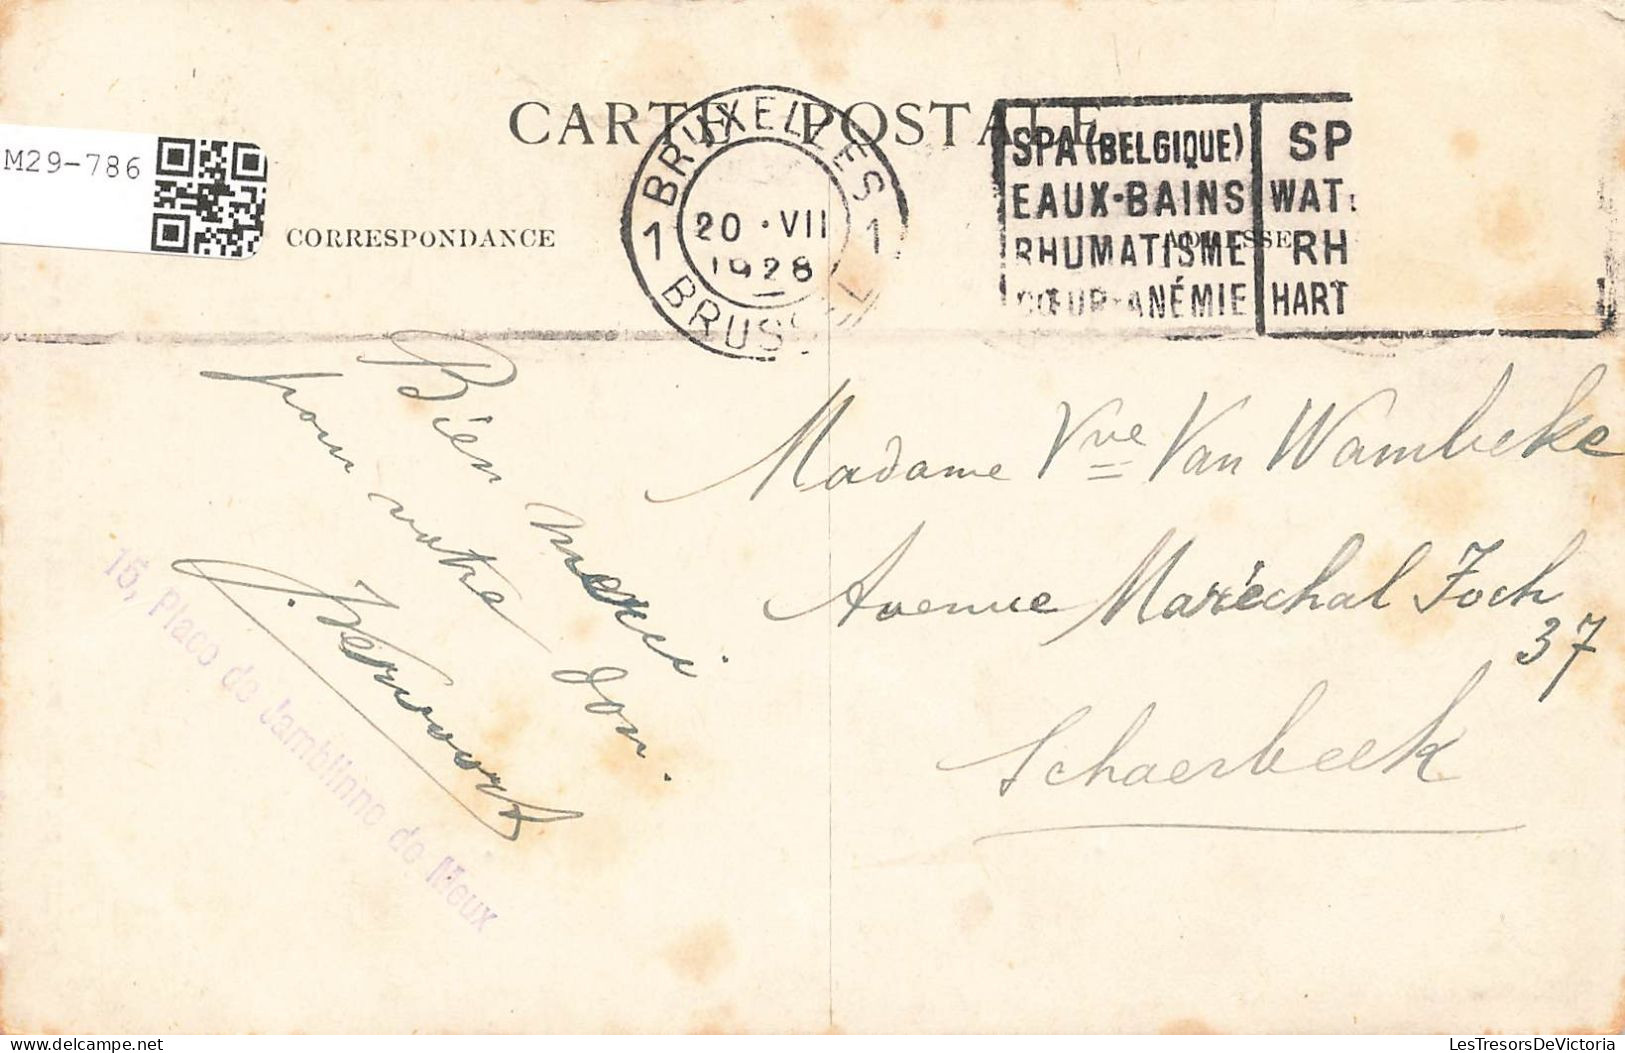 CARTE POSTALE
M29-786
CORRESPONDANCE
ADRESSE
1 BRUXELLES 1
20 · VII
1928
BRUSSEL
SPA (BELGIQUE)
EAUX-BAINS
RHUMATISME
CŒUR-ANÉMIE
SP
WAT
RH
HART
Bien merci.
pour votre don.
J. Vervoort
15, Place de Jamblinne de Meux
Madame Vve Van Wambeke
Avenue Maréchal Foch
37
Schaerbeek
delcampe.net
LesTresorsDeVictoria